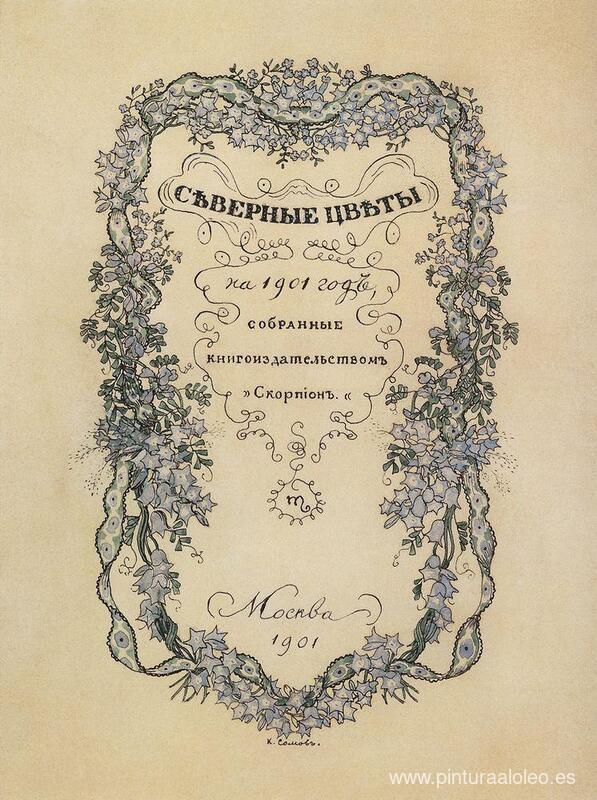 СѢВЕРНЫЕ ЦВѢТЫ
на 1901 годъ,
СОБРАННЫЕ
книгоиздательствомъ
»Скорпіонъ.«
m
Москва
1901
К. Сомовъ.
www.pinturaaloleo.es